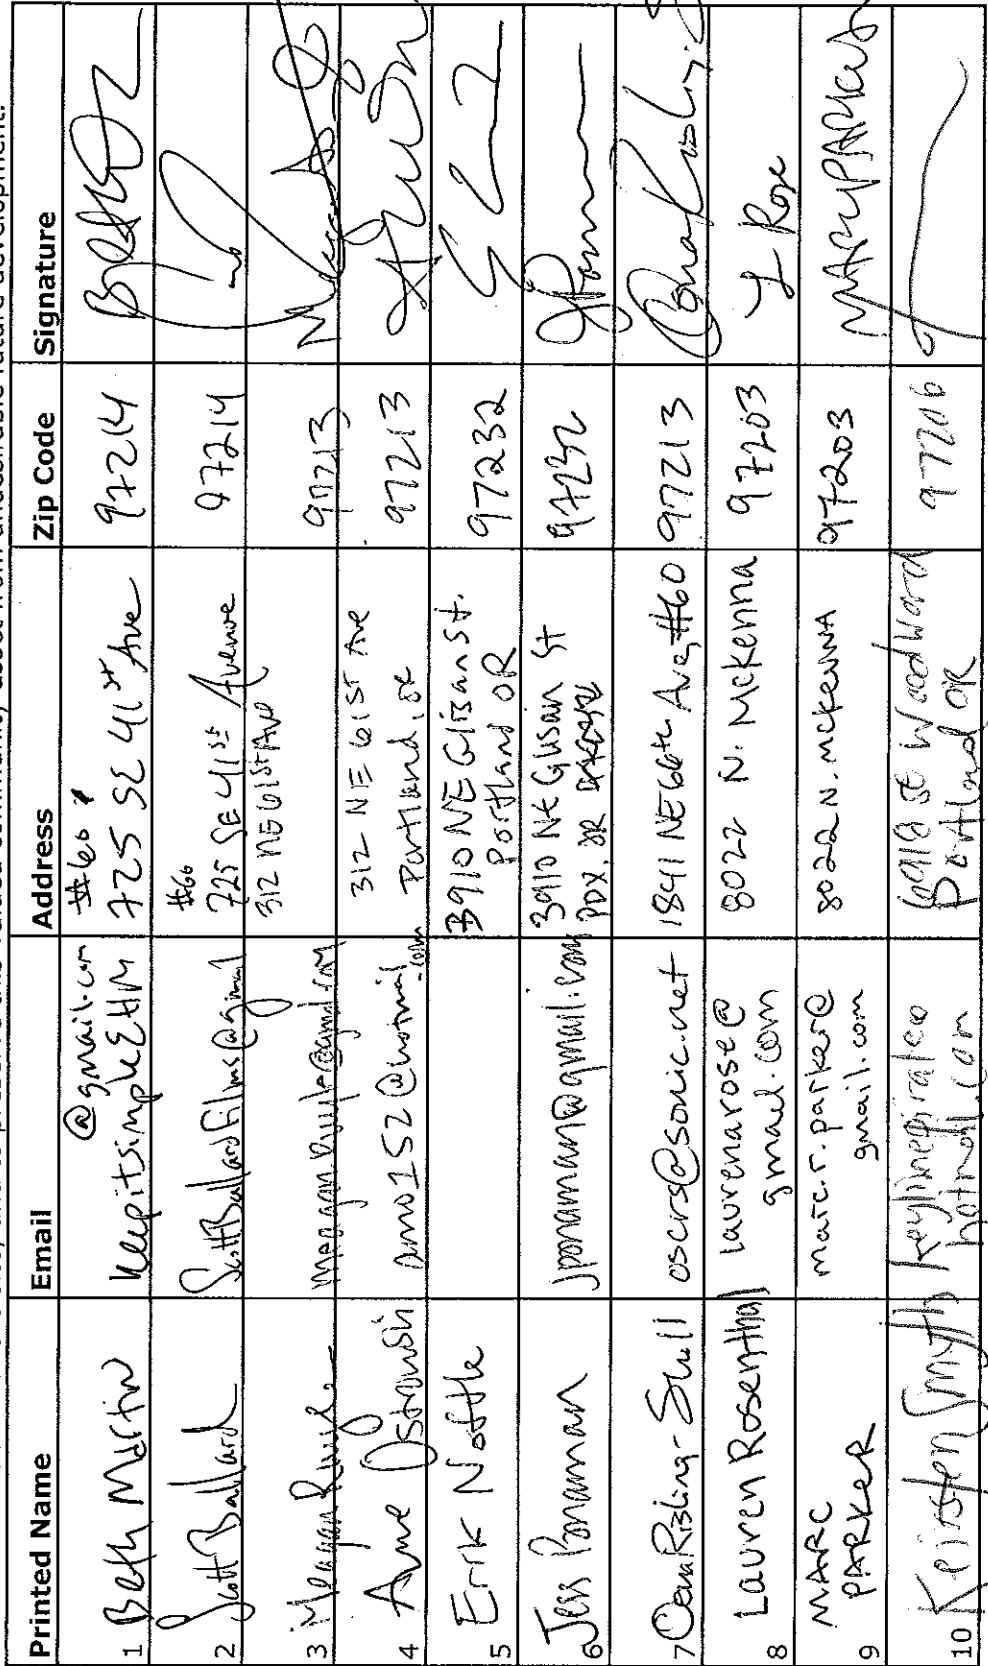 Printed Name Email Address Zip Code Signature
1 Beth Martin
@gmail.com
KeepitsimplEHM
#66
725 SE 41st Ave
97214
2 Scott Ballard
ScottBallardfilms@gmail
#66
725 SE 41st Avenue
97214
3 Meagan
312 NE 61st Ave
97213
4 Anne
anno152@hotmail
.com
312 NE 61st Ave
Portland OR
97213
5 Erik Nottle
3910 NE Glisan St.
Portland OR
97232
6 Jess Ponaman
jponaman@gmail.com
3910 NE Glisan St
PDX, OR
97232
7 Oceana Risling-Scull
oscrs@sonic.net
1841 NE 66th Ave #60
97213
8 Lauren Rosenthal
laurenarose@
gmail.com
8022 N. McKenna
97203
L Rose
9 MARC
PARKER
marc.r.parker@
gmail.com
8022 N. McKENNA
97203
MARC PARKER
10 Keirsten Smyth
keylimepirate@
hotmail.com
6918 SE Woodward
Portland OR
97206